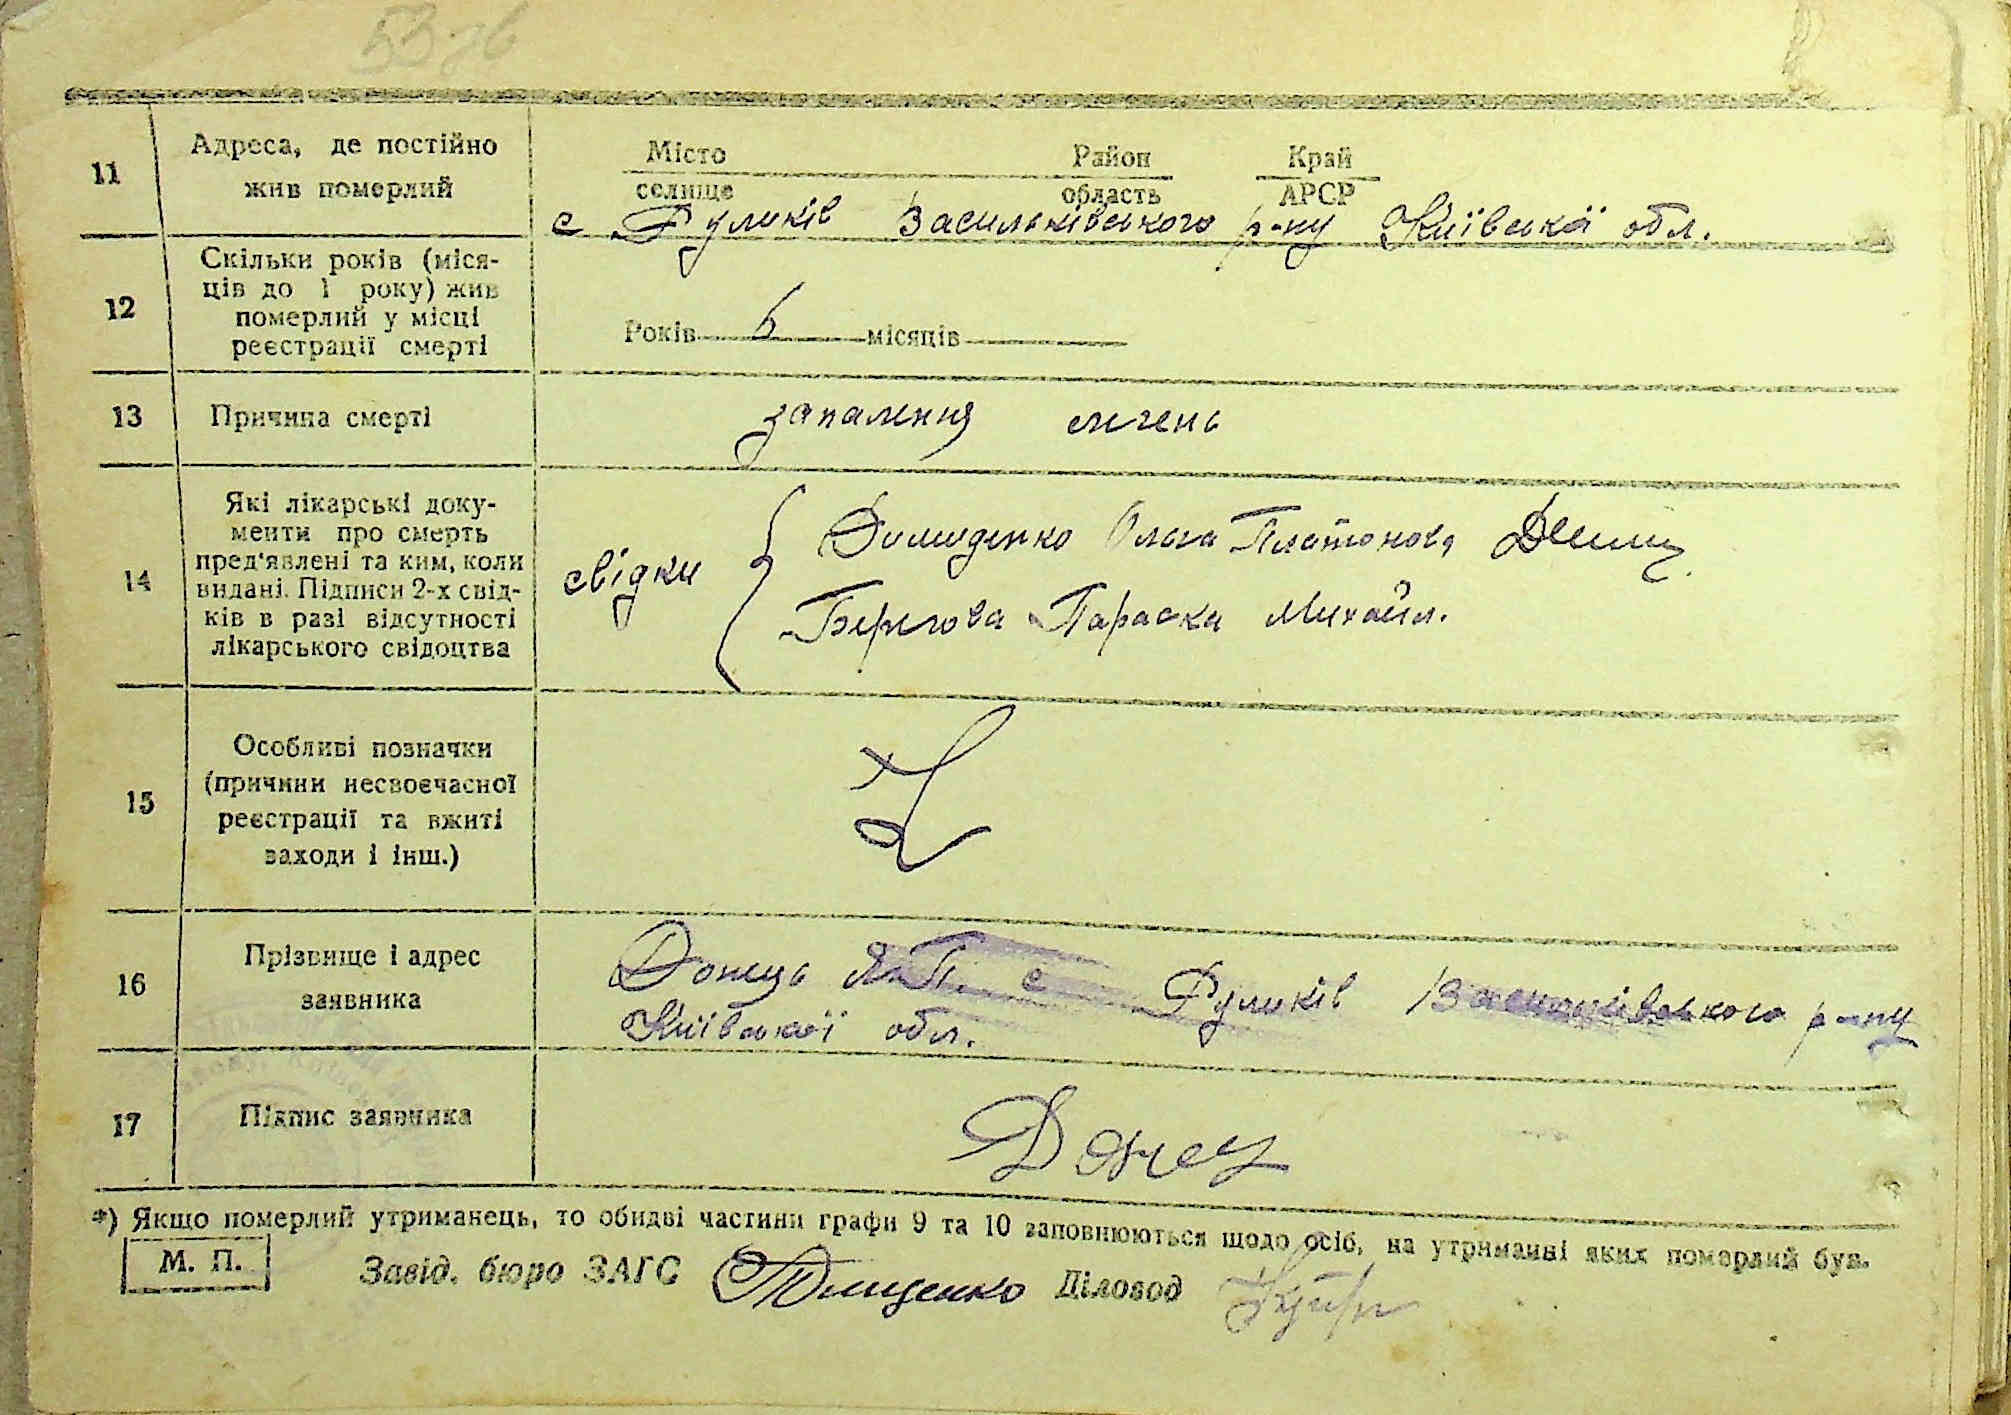 11
Адреса, де постійно
жив померлий
Місто Район Край
селище область АРСР
с Руликів Васильківського р-ну Київської обл.
12
Скільки років (міся-
ців до 1 року) жив
померлий у місці
реєстрації смерті
Років 6 місяців
13
Причина смерті
запалення легень
14
Які лікарські доку-
менти про смерть
пред'явлені та ким, коли
видані. Підписи 2-х свід-
ків в разі відсутності
лікарського свідоцтва
свідки
Ольга Платонова
Берегова Параска Михайл.
15
Особливі позначки
(причини несвоєчасної
реєстрації та вжиті
заходи і інш.)
16
Прізвище і адрес
заявника
Донець с Руликів Васильківського р-ну
Київської обл.
17
Підпис заявника
Донец
*) Якщо померлий утриманець, то обидві частини графи 9 та 10 заповнюються щодо осіб, на утриманні яких померлий був.
М. П.
Завід. бюро ЗАГС Діловод